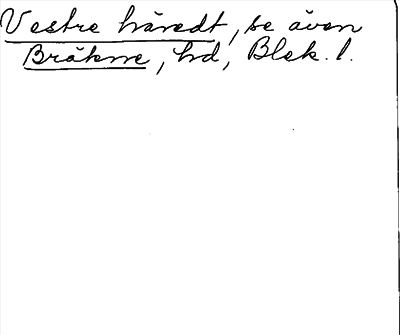 Vestre häredt, se även
Bräkne, hd, Blek. l.